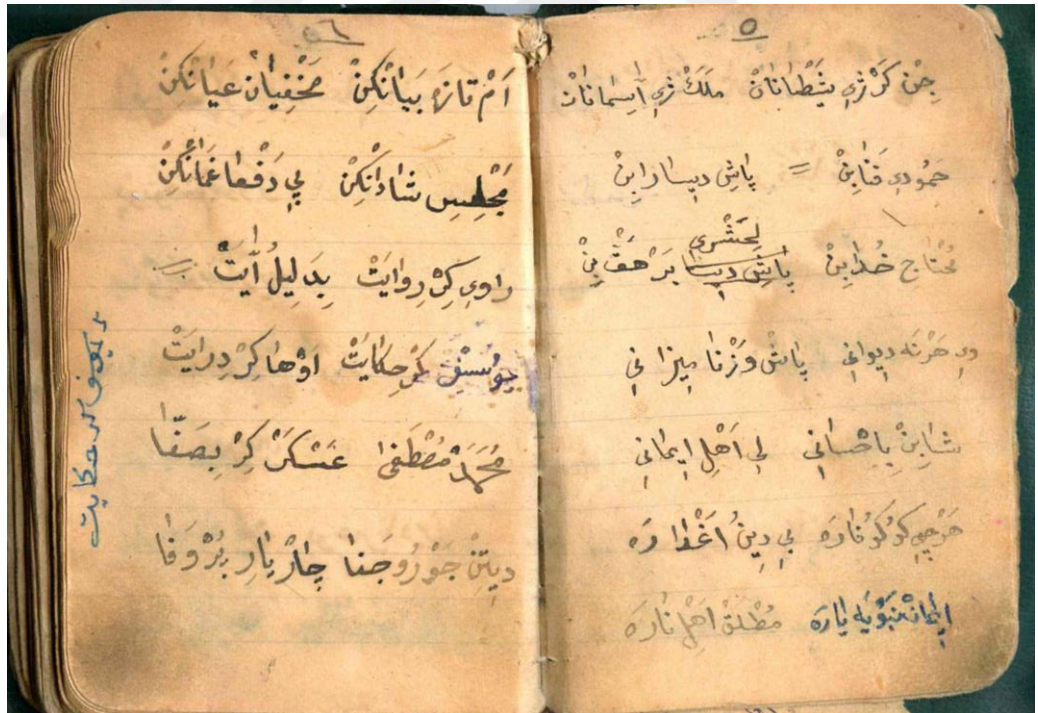 ٥
جِنْ كَرْ ژِي شَطَانَانْ مَلَكْ ژِي آسِمَانَانْ
حَمُو دِي فَنَابِنْ = پَاشِ دِيسَا رَابِنْ
مُحْتَاجِ خُدَابِنْ پَاشِ دِيسَا لِحَشْرِي بَرْهَڤْ بِنْ
وِي هَرْنَه دِيوَانِي پَاشْ وَزْنَا مِيزَانِي
شَابِنْ بِاِحْسَانِي لِي اَهْلِ اِيمَانِي
هَرْچِي كُو كُفَارَه بِي دِينُ اَغْدَارَه
اِيمَانْ نَبَوْيَه يَارَه مُطْلَقْ اَهْلِ نَارَه
٦
اَمْ تَازَه بَيَانْكِنْ مَخْفِيَانْ عَيَانْكِنْ
مَجْلِسِ شَادَانْكِنْ پِي دَفْعَا غَمَانْكِنْ
رَاوِي كِرْ رِوَايَتْ بِدَلِيلُ آيَتْ
يُوسُفْ كَرْ حِكَايَتْ اَوْهَا كِرْ دِرَايَتْ
مُحَمَّدْ مُصْطَفَى عَسْكَرْ كِرْ بِصَفَّا
دِيتِنْ جَوْرُ وجَفَا چَارْ يَارِ بُرْوَفَا
يوسف كر حكايت